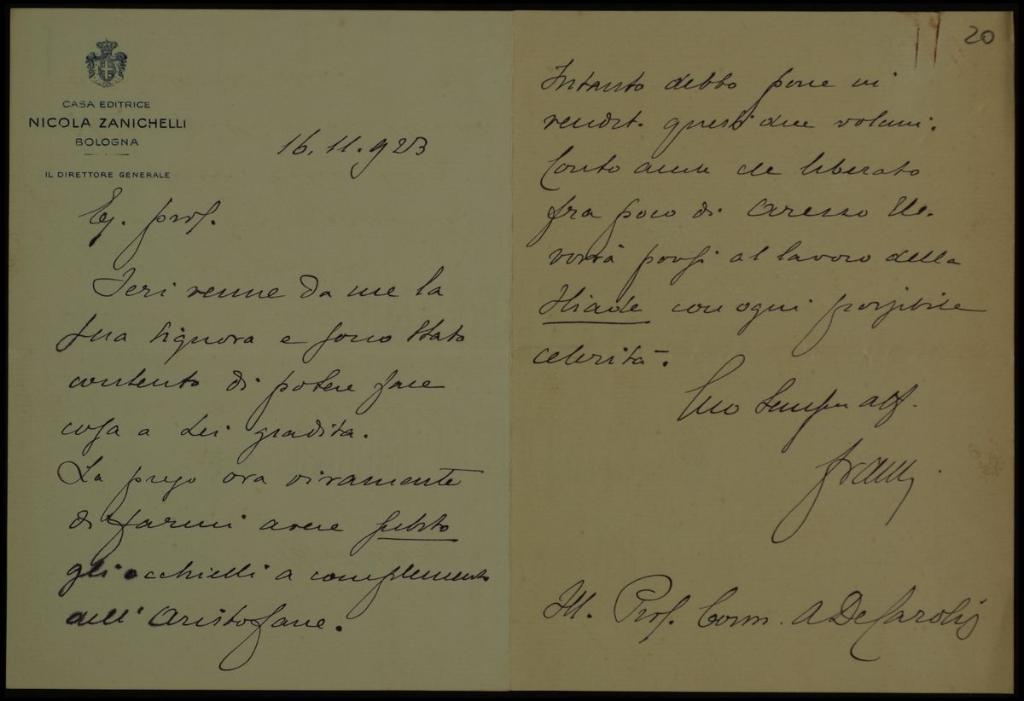 CASA EDITRICE
NICOLA ZANICHELLI
BOLOGNA
IL DIRETTORE GENERALE
16.11.923
Eg. prof.
Ieri venne da me la
sua Signora e sono stato
contento di potere fare
cosa a Lei gradita.
La prego ora vivamente
di farmi avere subito
gli occhielli a complemento
dell'Aristofane.
20
Intanto debbo porre in
vendit. questi due volumi.
Conto che liberato
fra poco di Arezzo Ne.
vorrà porsi al lavoro della
Iliade con ogni possibile
celerità.
Suo sempre aff.
Ill. Prof. Comm. A De Carolis